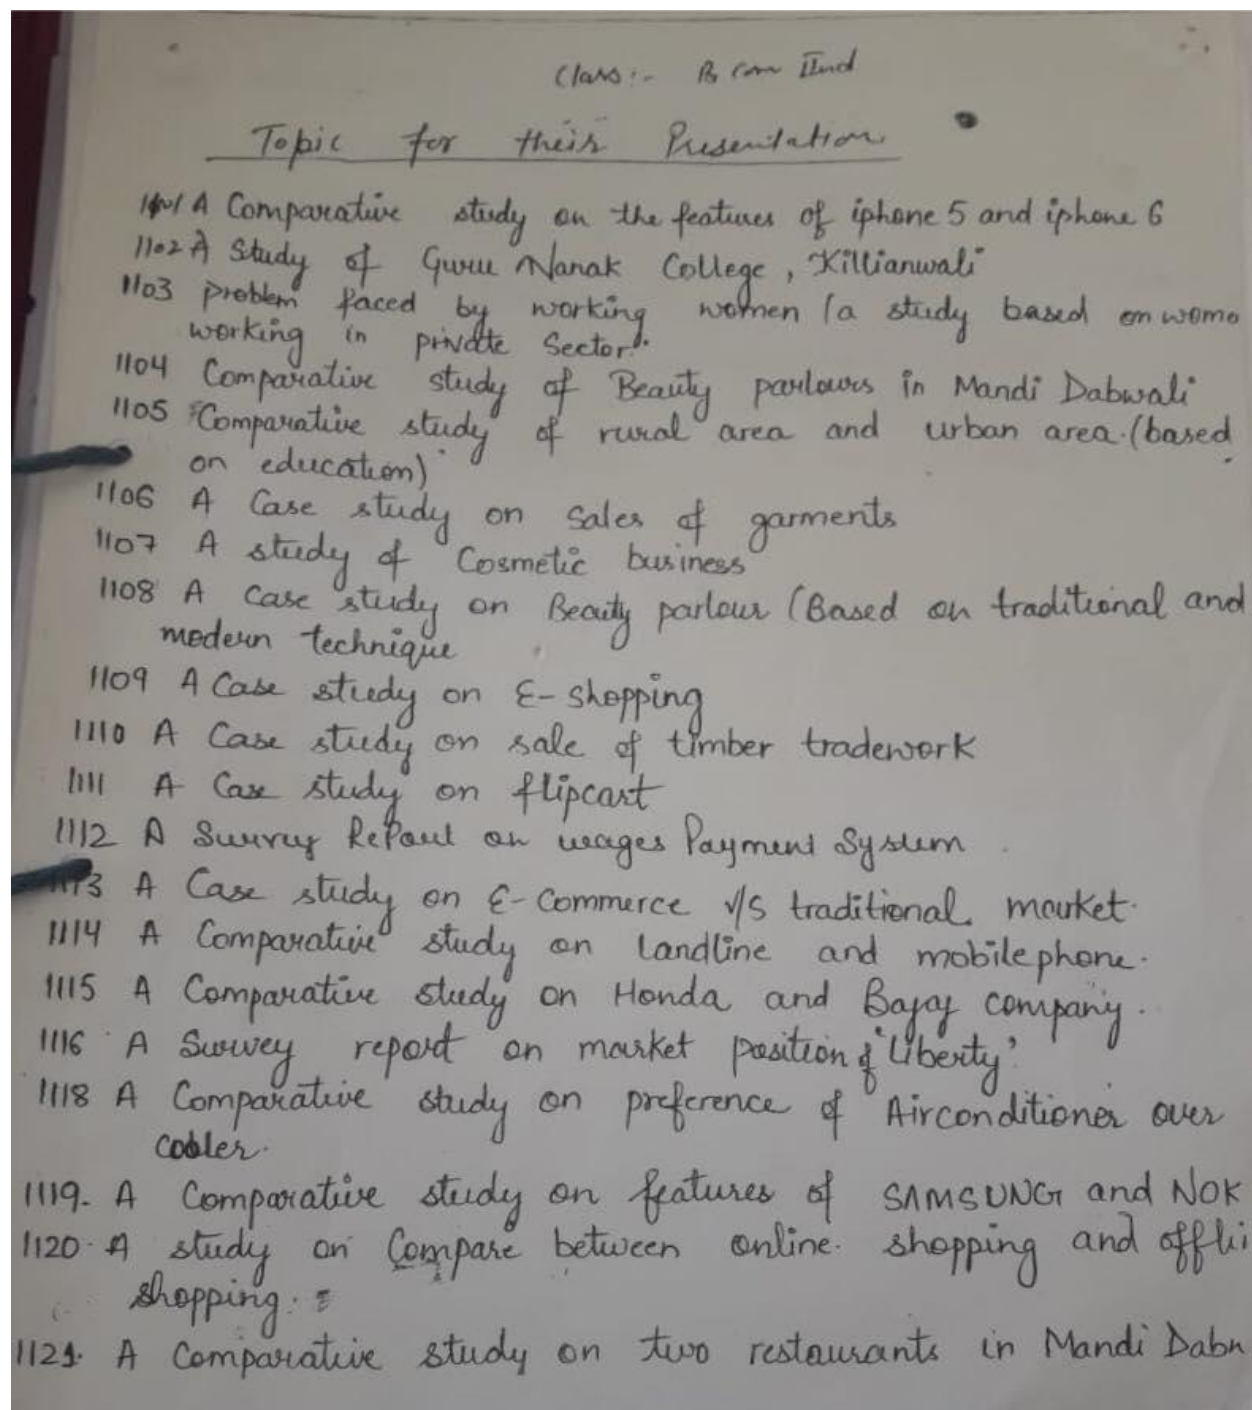 Class:- B Com IInd
Topic for their Presentation
1101 A Comparative study on the features of iphone 5 and iphone 6
1102 A Study of Guru Nanak College, Killianwali
1103 problem faced by working women (a study based on wome
working in private Sector.
1104 Comparative study of Beauty parlours in Mandi Dabwali
1105 Comparative study of rural area and urban area. (based
on education)
1106 A Case study on Sales of garments
1107 A study of Cosmetic business
1108 A Case study on Beauty parlour (Based on traditional and
modern technique
1109 A Case study on E-shopping
1110 A Case study on sale of timber tradework
1111 A Case study on flipcart
1112 A Survey Report on wages Payment System
1113 A Case study on E-Commerce v/s traditional market.
1114 A Comparative study on landline and mobilephone.
1115 A Comparative study on Honda and Bajaj company.
1116 A Survey report on market position of 'Liberty'
1118 A Comparative study on preference of Airconditioner over
cooler.
1119. A Comparative study on features of SAMSUNG and NOK
1120. A study on Compare between online. shopping and offli
shopping.
1121. A Comparative study on two restaurants in Mandi Dabw